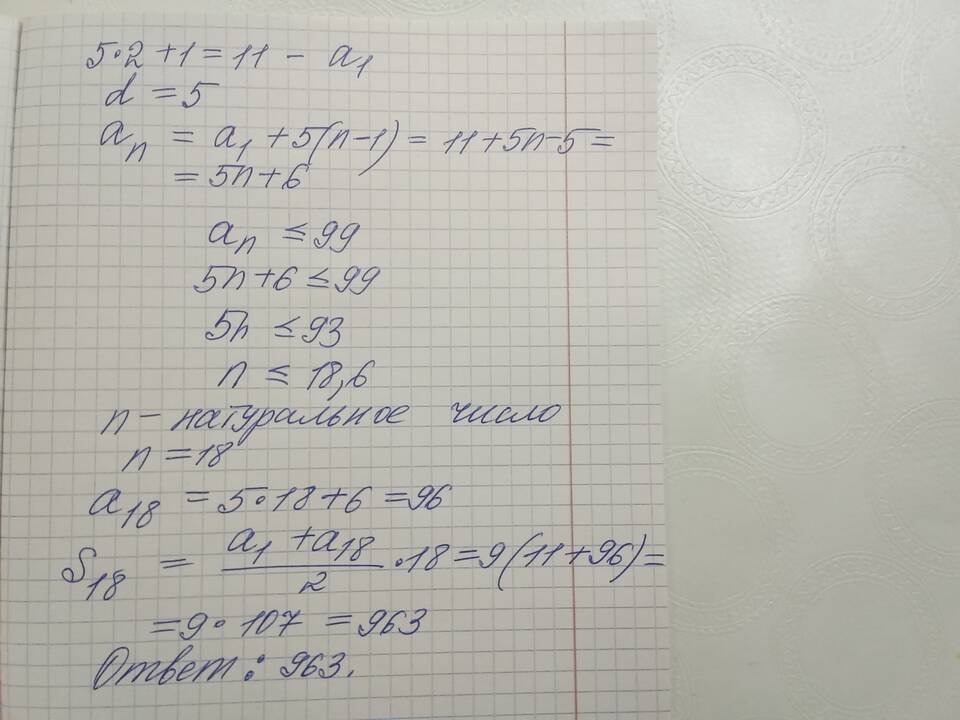 5·2+1=11 - a₁
d = 5
aₙ = a₁+5(n-1)= 11+5n-5=
=5n+6
aₙ ≤99
5n+6 ≤99
5n ≤93
n ≤ 18,6
n - натуральное число
n =18
a₁₈ = 5·18+6 =96
S₁₈ = (a₁ +a₁₈)/2 ·18=9(11+96)=
=9·107 =963
Ответ: 963.